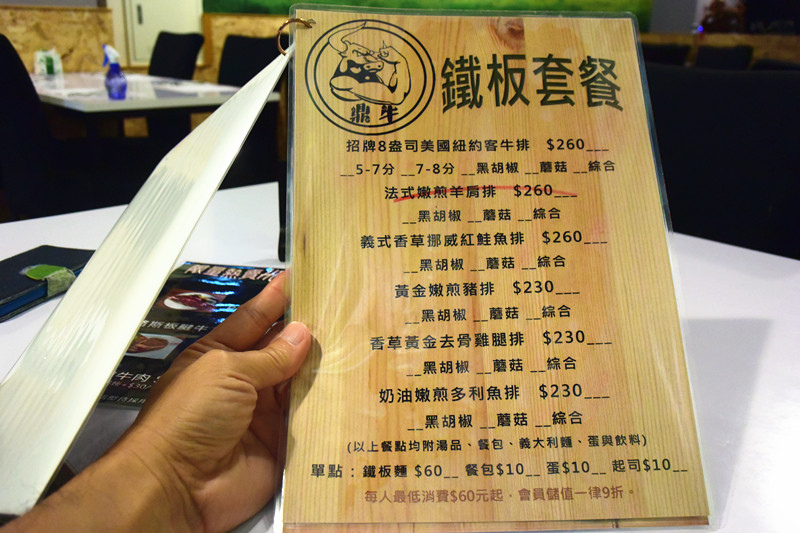 鼎牛
鐵板套餐
招牌8盎司美國紐約客牛排 $260___
__5-7分 __7-8分 __黑胡椒 __蘑菇 __綜合
法式嫩煎羊肩排 $260___
__黑胡椒 __蘑菇 __綜合
義式香草挪威紅鮭魚排 $260___
__黑胡椒 __蘑菇 __綜合
黃金嫩煎豬排 $230___
__黑胡椒 __蘑菇 __綜合
香草黃金去骨雞腿排 $230___
__黑胡椒 __蘑菇 __綜合
奶油嫩煎多利魚排 $230___
__黑胡椒 __蘑菇 __綜合
(以上餐點均附湯品、餐包、義大利麵、蛋與飲料)
單點：鐵板麵 $60__ 餐包$10__ 蛋$10__ 起司$10__
每人最低消費$60元起，會員儲值一律9折。